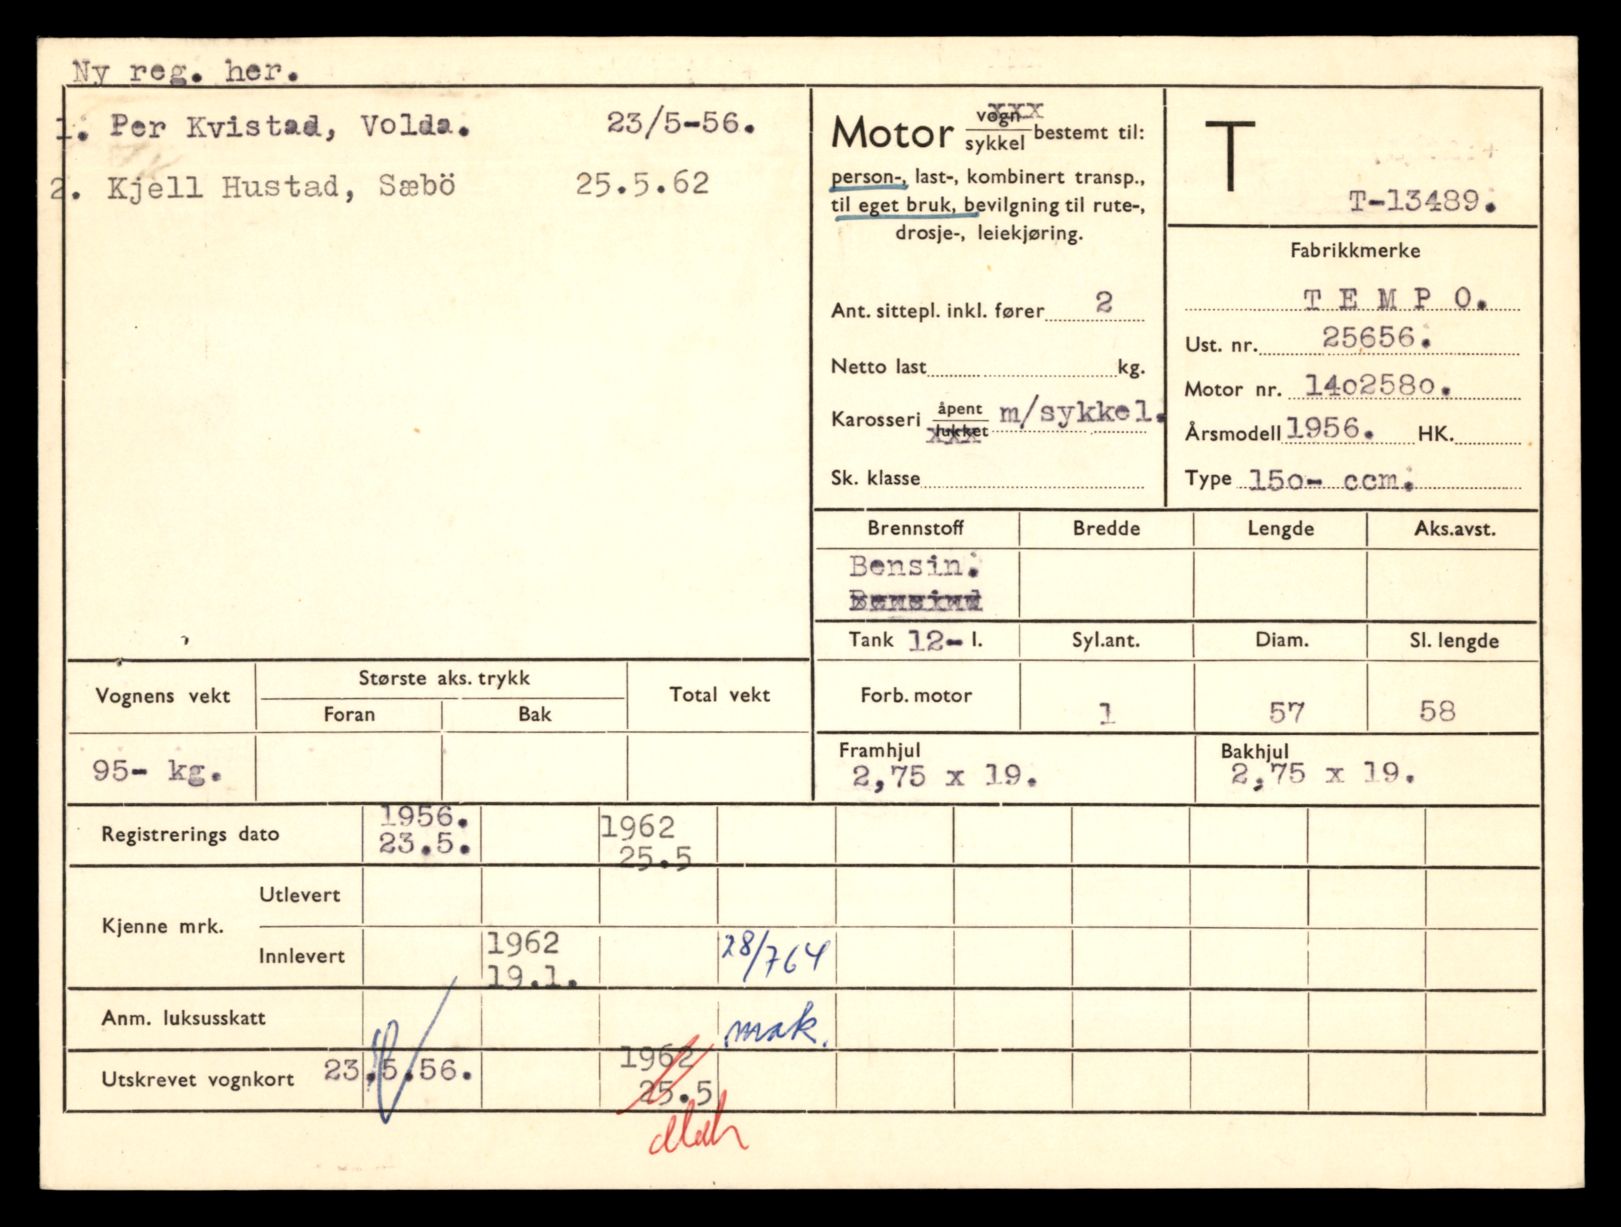 Ny reg. her.
1. Per Kvistad, Volda. 23/5-56.
2. Kjell Hustad, Sæbö 25.5.62
Motor vogn xxx
sykkel bestemt til:
person-, last-, kombinert transp.,
til eget bruk, bevilgning til rute-,
drosje-, leiekjøring.
Ant. sittepl. inkl. fører 2
Netto last kg.
Karosseri åpent m/sykkel.
lukket xxx
Sk. klasse
T
T-13489.
Fabrikkmerke
T E M P O.
Ust. nr. 25656.
Motor nr. 14o258o.
Årsmodell 1956. HK.
Type 15o- ccm.
Brennstoff Bredde Lengde Aks.avst.
Bensin.
Tank 12- l. Syl.ant. Diam. Sl. lengde
Forb. motor 1 57 58
Framhjul Bakhjul
2,75 x 19. 2,75 x 19.
Vognens vekt Største aks. trykk Total vekt
Foran Bak
95- kg.
Registrerings dato 1956. 1962
23.5. 25.5
Kjenne mrk. Utlevert
Innlevert 1962 28/7 64
19.1.
Anm. luksusskatt mak.
Utskrevet vognkort 23.5.56. 1962
25.5